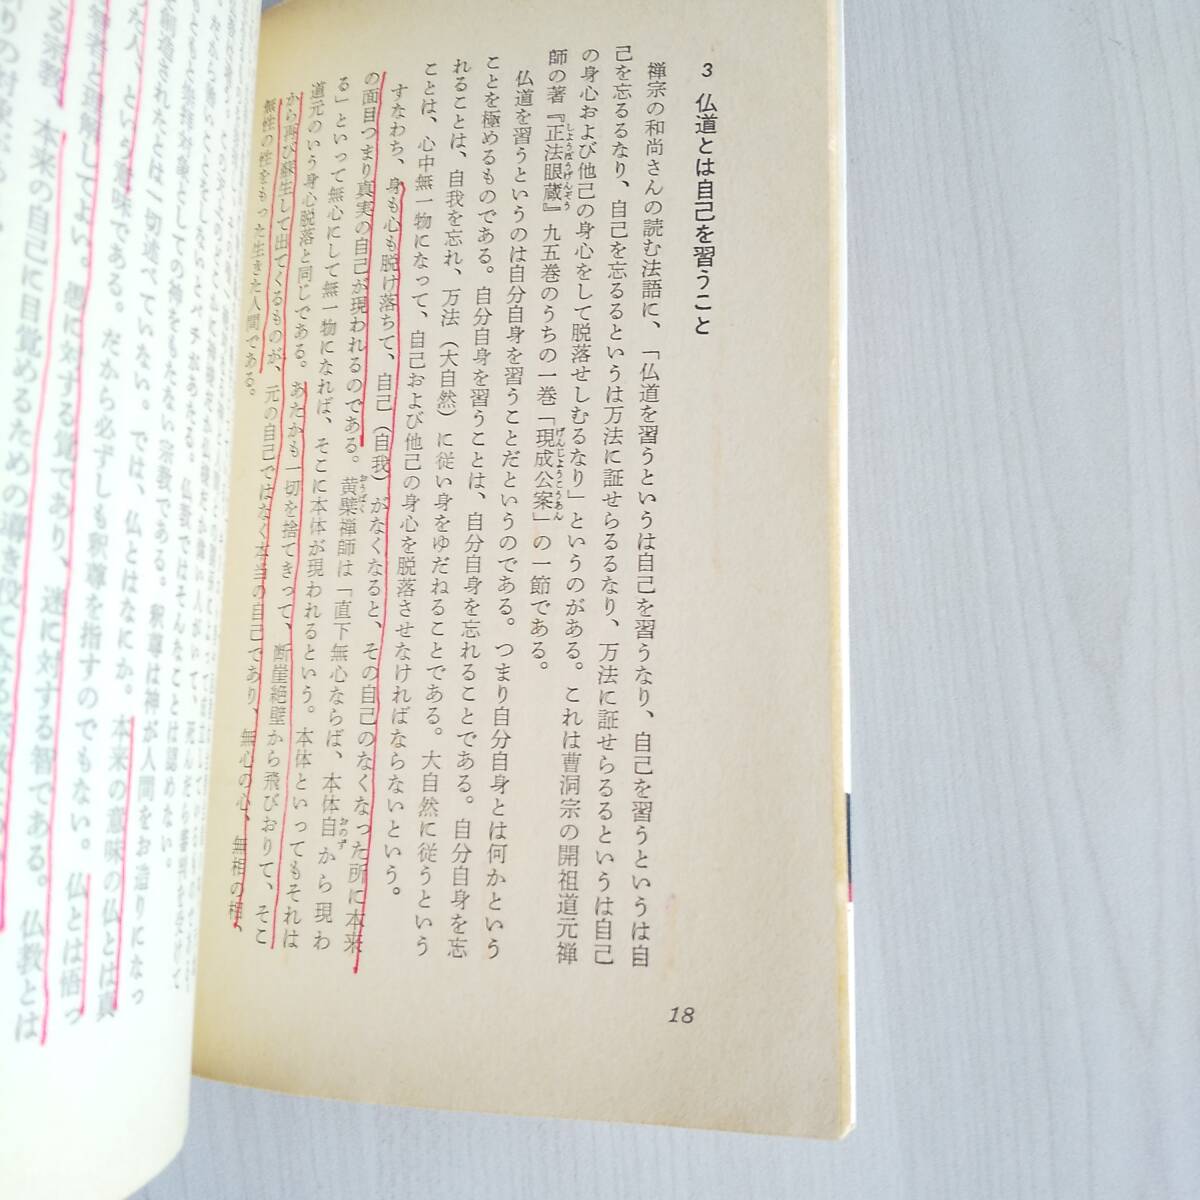 3 仏道とは自己を習うこと
禅宗の和尚さんの読む法語に、「仏道を習うというは自己を習うなり、自己を習うというは自
己を忘るるなり、自己を忘るるというは万法に証せらるるなり、万法に証せらるるというは自己
の身心および他己の身心をして脱落せしむるなり」というのがある。これは曹洞宗の開祖道元禅
師の著『正法眼蔵』九五巻のうちの一巻「現成公案」の一節である。
しょうぼうげんぞう
げんじょうこうあん
仏道を習うというのは自分自身を習うことだというのである。つまり自分自身とは何かという
ことを極めるものである。自分自身を習うことは、自分自身を忘れることである。自分自身を忘
れることは、自我を忘れ、万法（大自然）に従い身をゆだねることである。大自然に従うという
ことは、心中無一物になって、自己および他己の身心を脱落させなければならないという。
すなわち、身も心も脱け落ちて、自己（自我）がなくなると、その自己のなくなった所に本来
の面目つまり真実の自己が現われるのである。黄檗禅師は「直下無心ならば、本体自から現わ
おうばく
おのず
る」といって無心にして無一物になれば、そこに本体が現われるという。本体といってもそれは
道元のいう身心脱落と同じである。あたかも一切を捨てきって、断崖絶壁から飛びおりて、そこ
から再び蘇生して出てくるものが、元の自己ではなく本当の自己であり、無心の心、無相の相、
無性の性をもった生きた人間である。
18
創造されたとは一切述べていない。では、仏とはなにか。本来の意味の仏とは真
った人、という意味である。だから必ずしも釈尊を指すのでもない。仏とは悟っ
智者と理解してよい。愚に対する覚であり、迷に対する智である。仏教とは
る宗教、本来の自己に目覚めるための導き役になる宗教